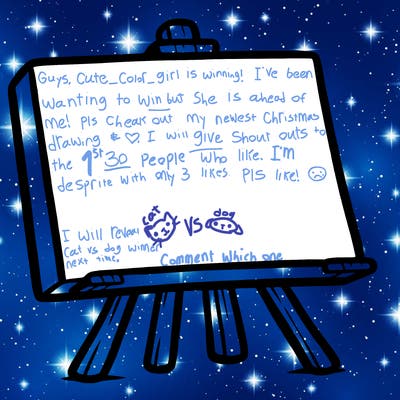 Guys, Cute_Color_girl is winning! I've been
wanting to win but She is ahead of
me! Pls cheak out my newest Christmas
drawing & ♡. I will give Shout outs to
the 1st 30 people who like. I'm
desprite with only 3 likes Pls like! ☹
cat dog
I will reveal VS
Cat vs dog winner
next time.
Comment which one